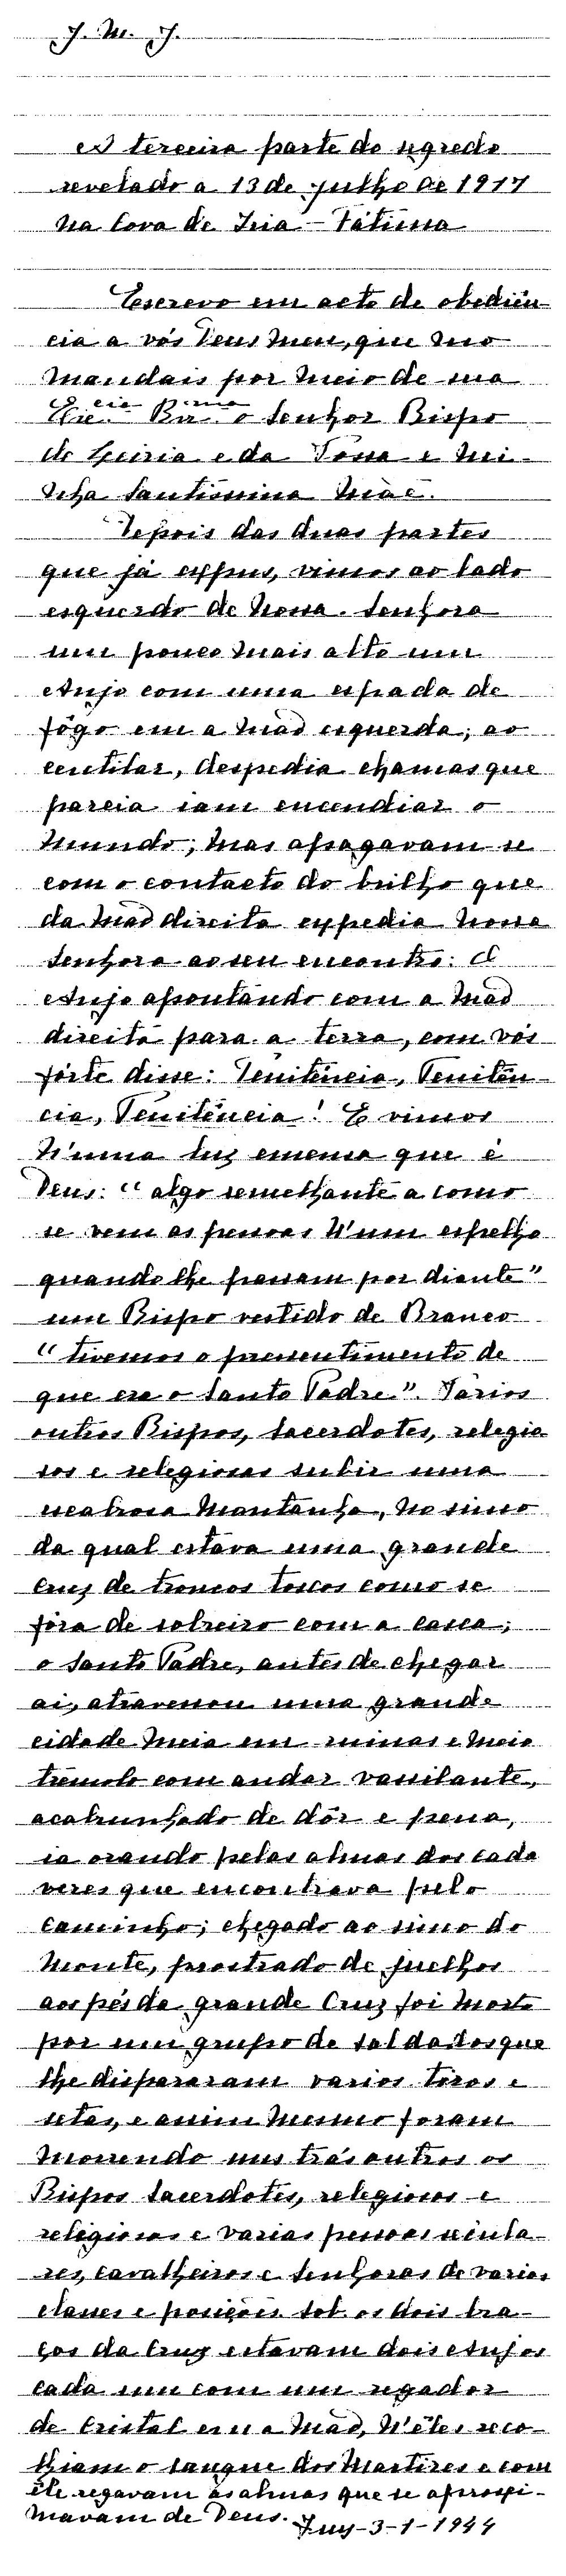 J. M. J.
A terceira parte do segredo
revelado a 13 de julho de 1917
na Cova de Iria – Fátima
Escrevo em acto de obediên-
cia a vós Deus meu, que mo
mandais por meio de sua
Ex.cia Rev.ma o Senhor Bispo
de Leiria e da Vossa e mi-
nha Santissima Mãe.
Depois das duas partes
que já expus, vimos ao lado
esquerdo de Nossa Senhora
um pouco mais alto um
Anjo com uma espada de
fôgo em a mão esquerda; ao
centilar, despedia chamas que
parecia iam encendiar o
mundo; mas apagavam-se
com o contacto do brilho que
da mão direita expedia Nossa
Senhora ao seu encontro: O
Anjo apontando com a mão
direita para a terra, com voz
forte disse: Penitência, Penitên-
cia, Penitência! E vimos
n'uma luz emensa que é
Deus: “algo semelhante a como
se vem as pessoas n'um espelho
quando lhe passam por diante”
um Bispo vestido de Branco
“tivemos o pressentimento de
que era o Santo Padre”. Varios
outros Bispos, Sacerdotes, religio
sos e religiosas subir uma
escabrosa montanha, no simo
da qual estava uma grande
Cruz de troncos toscos como se
fôra de sobreiro com a casca;
o Santo Padre, antes de chegar
aí, atravessou uma grande
cidade meia em ruinas e meio
trémulo com andar vassilante,
acabrunhado de dôr e pena,
ia orando pelas almas dos cada
veres que encontrava pelo
caminho; chegado ao simo do
monte, prostrado de juelhos
aos pés da grande Cruz foi morto
por um grupo de soldados que
lhe dispararam varios tiros e
setas, e assim mesmo foram
morrendo uns trás outros os
Bispos Sacerdotes, religiosos e
religiosas e varias pessoas secula-
res, cavalheiros e senhoras de varias
classes e posições. Sob os dois bra-
ços da Cruz estavam dois Anjos
cada um com um regador
de cristal em a mão, n'êles reco-
lhiam o sangue dos Martires e com
êle regavam as almas que se aproxi-
mavam de Deus.
Tuy-3-1-1944